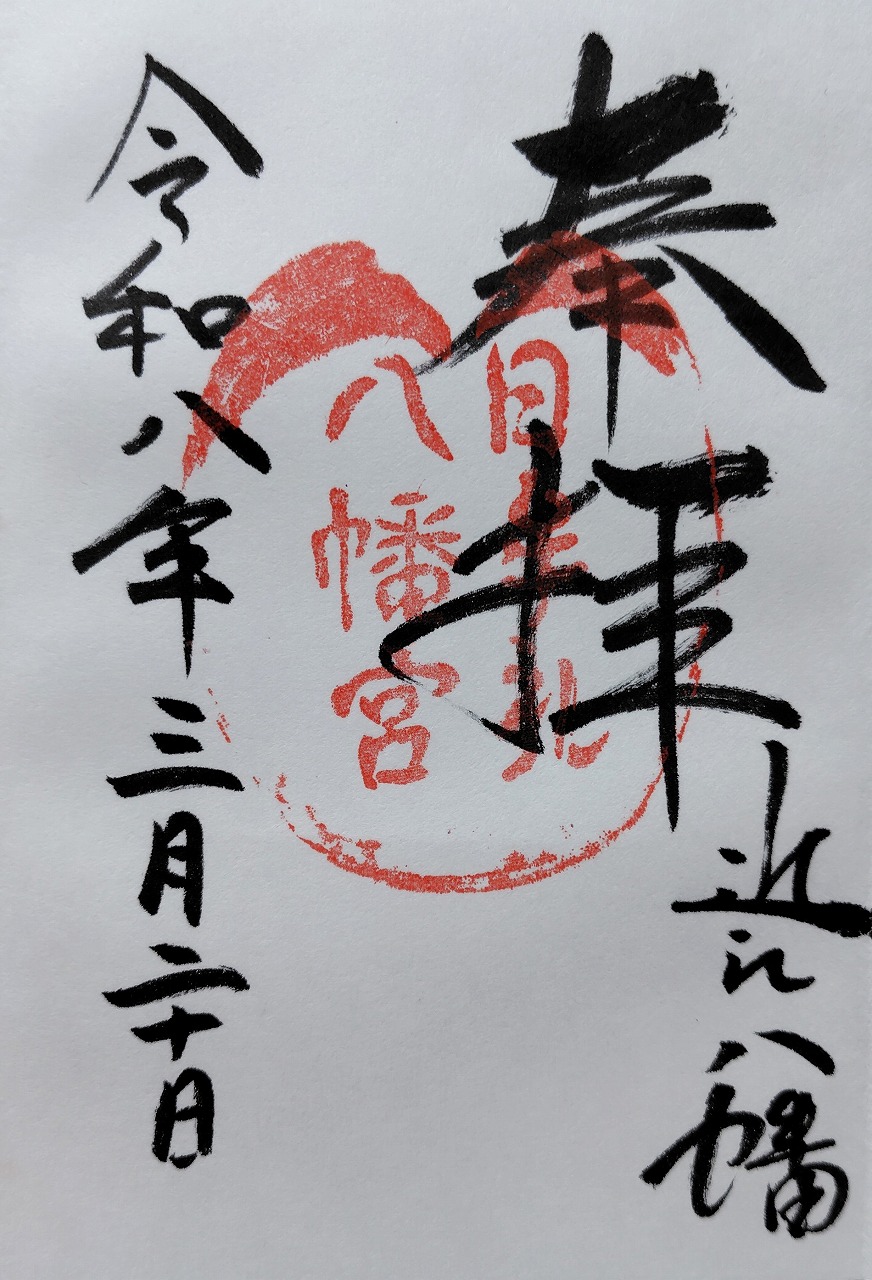 奉拝
近江八幡
日牟禮
八幡宮
令和八年三月二十日